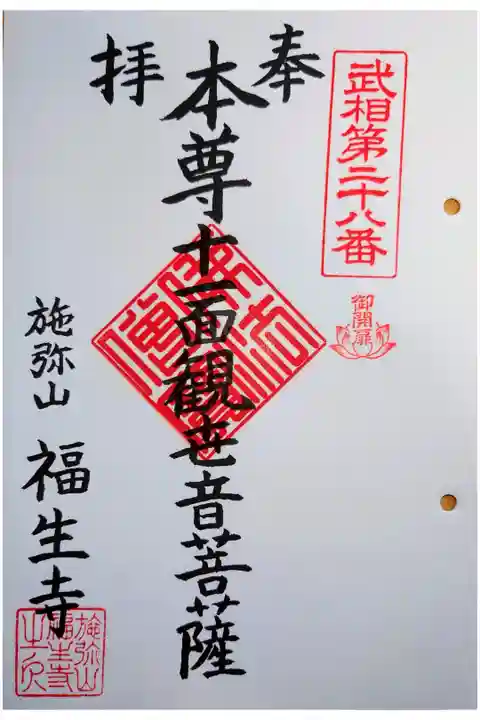 武相第二十八番
御開扉
奉拝
本尊十一面観世音菩薩
施弥山 福生寺
施弥山
福生寺